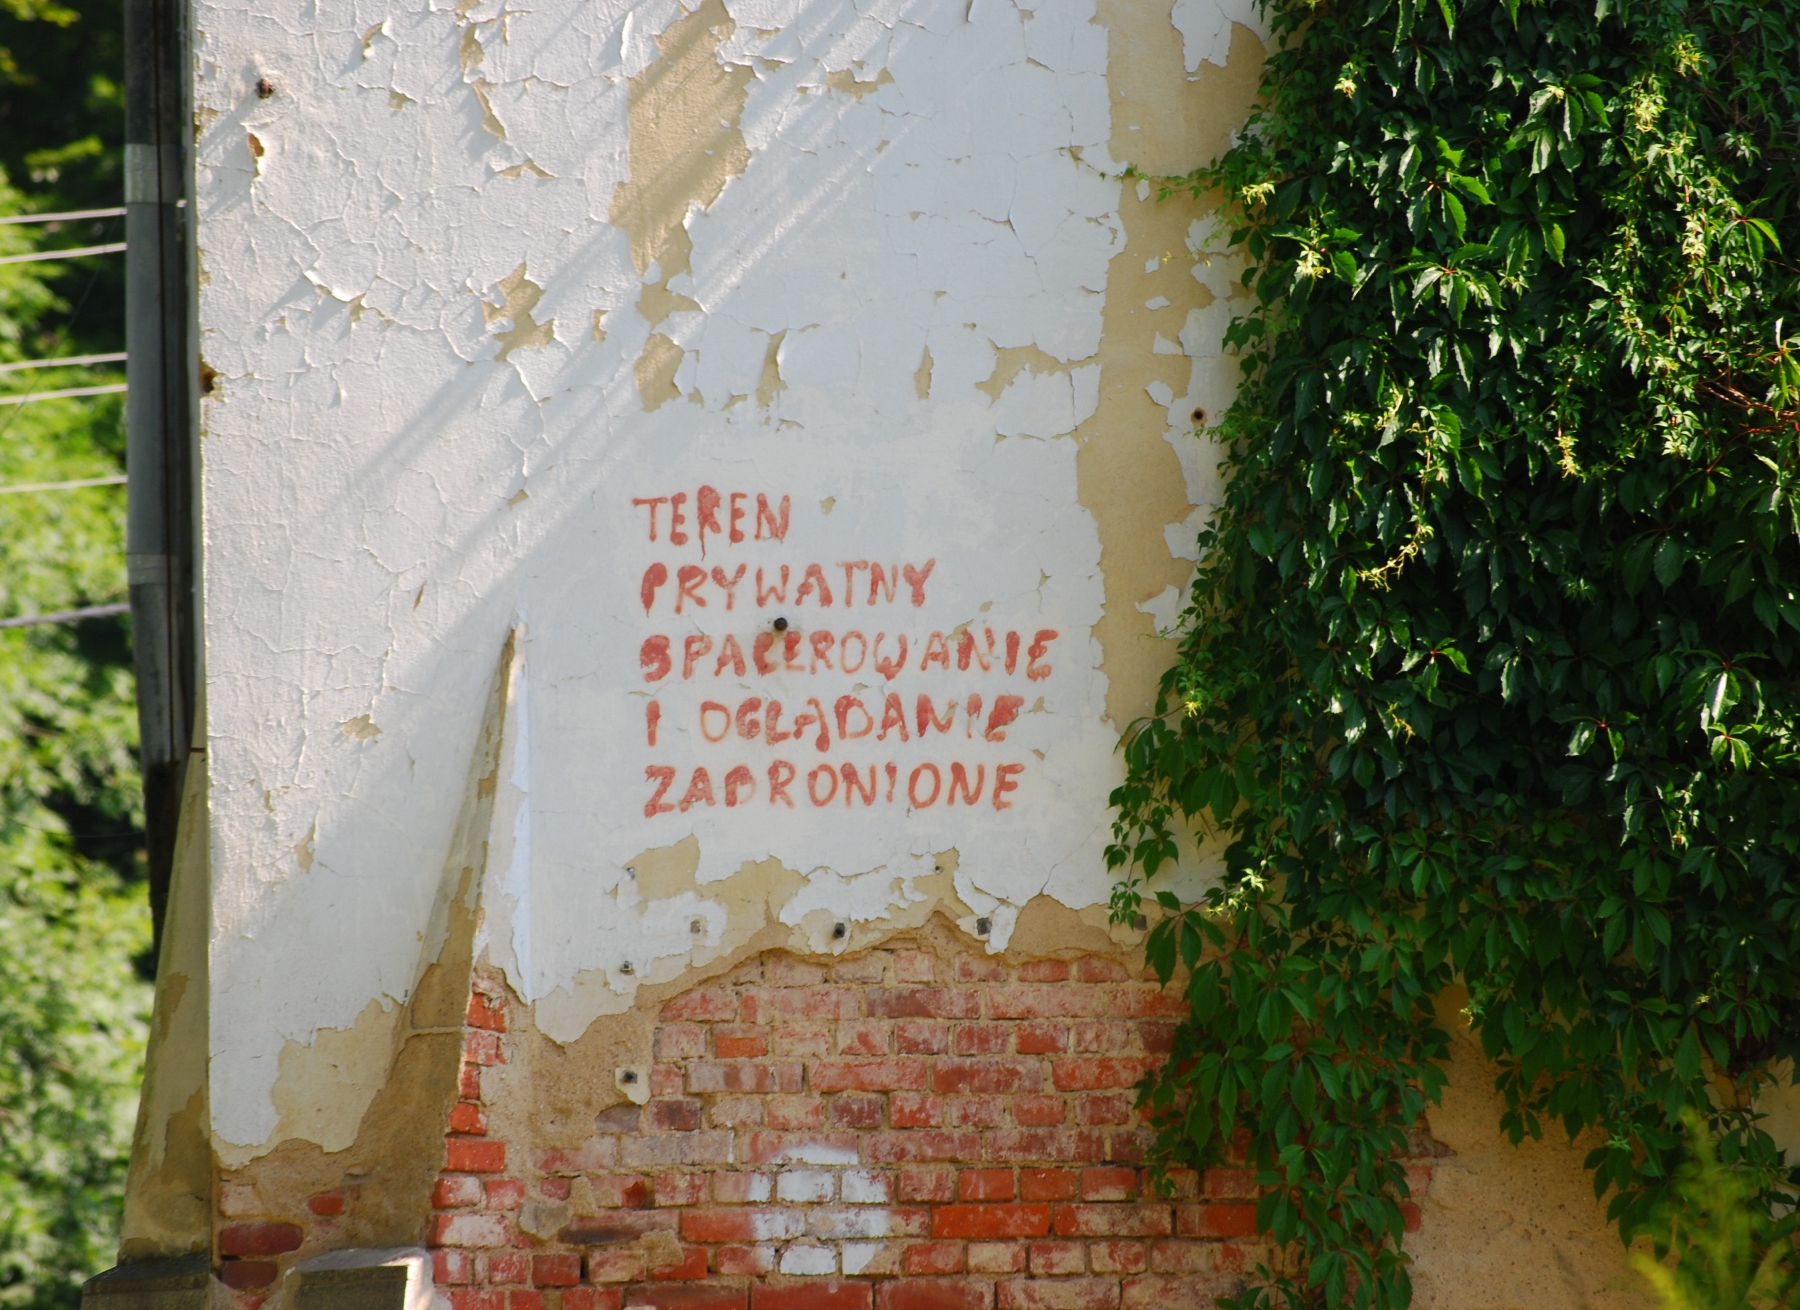 TEREN
PRYWATNY
SPACEROWANIE
I OGLĄDANIE
ZABRONIONE